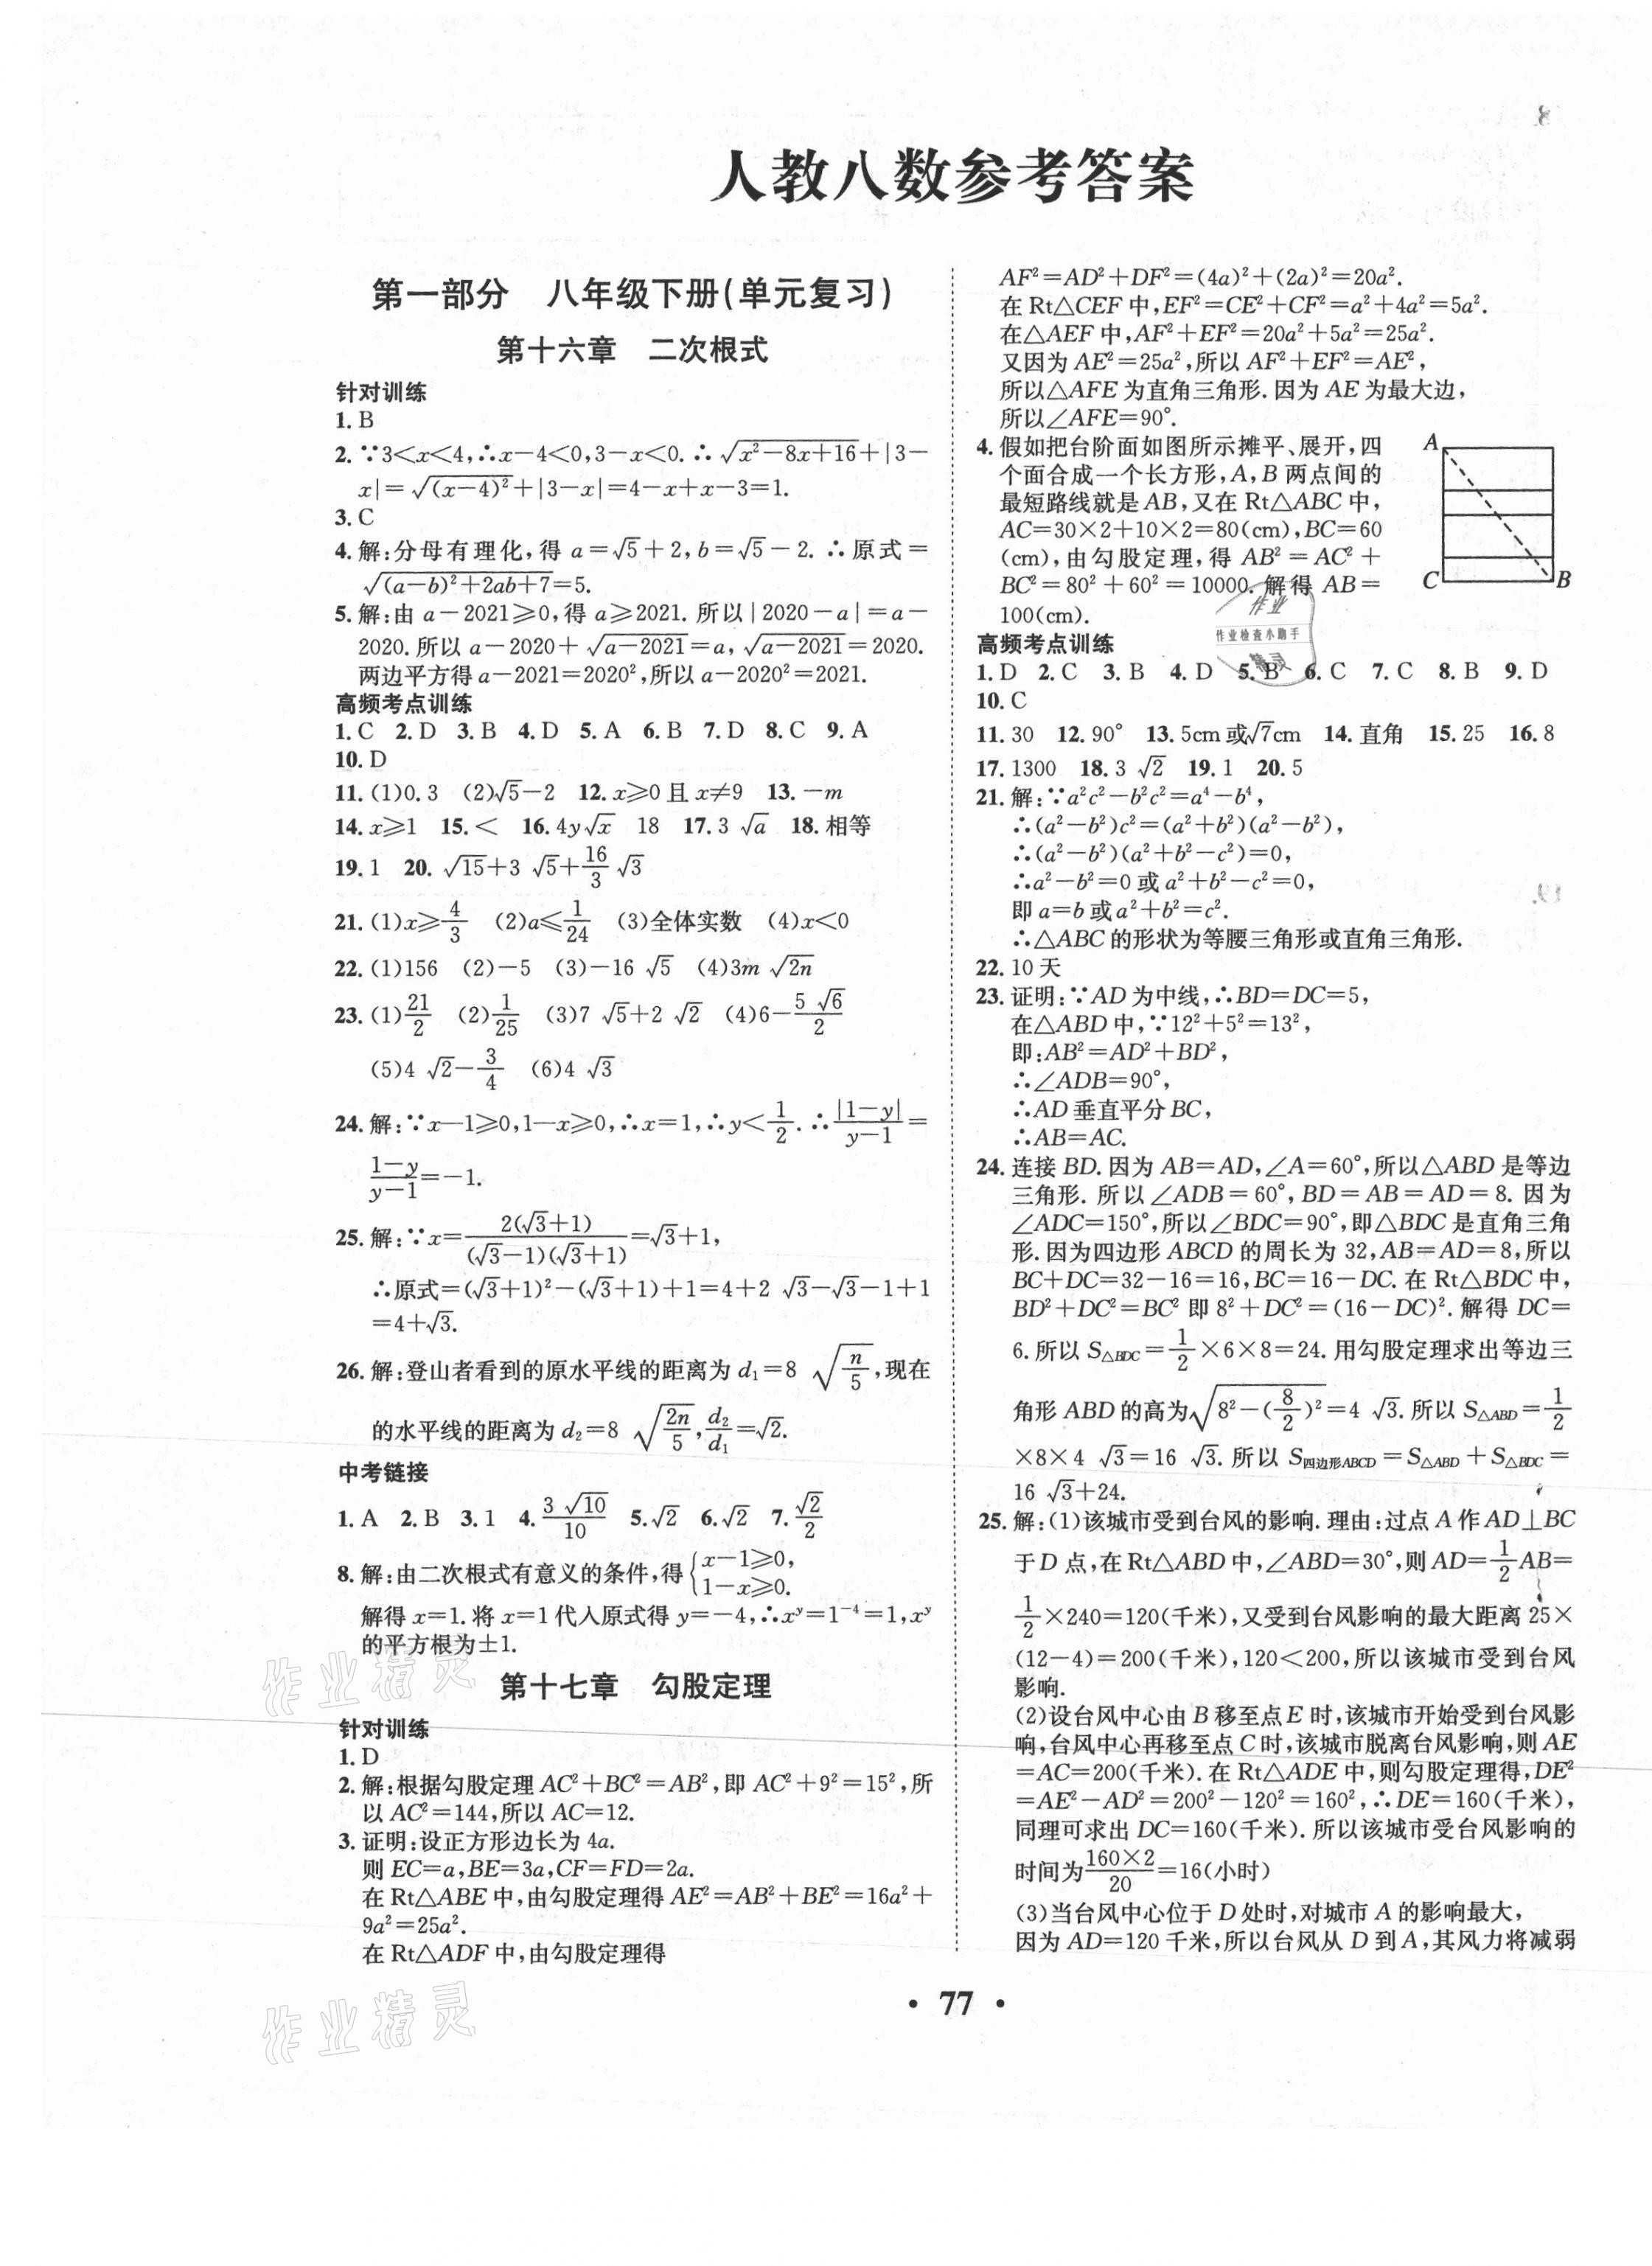 人教八数参考答案
第一部分 八年级下册(单元复习)
第十六章 二次根式
针对训练
1. B
2. ∵3<x<4,∴x-4<0,3-x<0.∴√(x²-8x+16)+|3-
x|=√((x-4)²)+|3-x|=4-x+x-3=1.
3. C
4. 解:分母有理化,得 a=√5+2,b=√5-2.∴原式=
√((a-b)²+2ab+7)=5.
5. 解:由 a-2021≥0,得 a≥2021.所以|2020-a|=a-
2020.所以 a-2020+√(a-2021)=a,√(a-2021)=2020.
两边平方得 a-2021=2020²,所以 a-2020²=2021.
高频考点训练
1. C 2. D 3. B 4. D 5. A 6. B 7. D 8. C 9. A
10. D
11. (1)0.3 (2)√5-2 12. x≥0 且 x≠9 13. -m
14. x≥1 15. < 16. 4y√x 18 17. 3√a 18. 相等
19. 1 20. √15+3√5+16/3√3
21. (1)x≥4/3 (2)a≤1/24 (3)全体实数 (4)x<0
22. (1)156 (2)-5 (3)-16√5 (4)3m√(2n)
23. (1)21/2 (2)1/25 (3)7√5+2√2 (4)6-5√6/2
(5)4√2-3/4 (6)4√3
24. 解:∵x-1≥0,1-x≥0,∴x=1,∴y<1/2.∴|1-y|/(y-1)=
(1-y)/(y-1)=-1.
25. 解:∵x=2(√3+1)/((√3-1)(√3+1))=√3+1,
∴原式=(√3+1)²-(√3+1)+1=4+2√3-√3-1+1
=4+√3.
26. 解:登山者看到的原水平线的距离为 d₁=8√(n/5),现在
的水平线的距离为 d₂=8√(2n/5),d₂/d₁=√2.
中考链接
1. A 2. B 3. 1 4. 3√10/10 5. √2 6. √2 7. √2/2
8. 解:由二次根式有意义的条件,得{x-1≥0,
1-x≥0.
解得 x=1.将 x=1 代入原式得 y=-4,∴xʸ=1⁻⁴=1,xʸ
的平方根为±1.
第十七章 勾股定理
针对训练
1. D
2. 解:根据勾股定理 AC²+BC²=AB²,即 AC²+9²=15²,所
以 AC²=144,所以 AC=12.
3. 证明:设正方形边长为 4a.
则 EC=a,BE=3a,CF=FD=2a.
在 Rt△ABE 中,由勾股定理得 AE²=AB²+BE²=16a²+
9a²=25a².
在 Rt△ADF 中,由勾股定理得
AF²=AD²+DF²=(4a)²+(2a)²=20a².
在 Rt△CEF 中,EF²=CE²+CF²=a²+4a²=5a².
在△AEF 中,AF²+EF²=20a²+5a²=25a².
又因为 AE²=25a²,所以 AF²+EF²=AE²,
所以△AFE 为直角三角形.因为 AE 为最大边,
所以∠AFE=90°.
4. 假如把台阶面如图所示摊平、展开,四
个面合成一个长方形,A,B 两点间的
最短路线就是 AB,又在 Rt△ABC 中,
AC=30×2+10×2=80(cm),BC=60
(cm),由勾股定理,得 AB²=AC²+
BC²=80²+60²=10000.解得 AB=
100(cm).
A
C
B
作业
作业检查小助手
精灵
高频考点训练
1. D 2. C 3. B 4. D 5. B 6. C 7. C 8. B 9. D
10. C
11. 30 12. 90° 13. 5cm 或√7cm 14. 直角 15. 25 16. 8
17. 1300 18. 3√2 19. 1 20. 5
21. 解:∵a²c²-b²c²=a⁴-b⁴,
∴(a²-b²)c²=(a²+b²)(a²-b²),
∴(a²-b²)(a²+b²-c²)=0,
∴a²-b²=0 或 a²+b²-c²=0,
即 a=b 或 a²+b²=c².
∴△ABC 的形状为等腰三角形或直角三角形.
22. 10 天
23. 证明:∵AD 为中线,∴BD=DC=5,
在△ABD 中,∵12²+5²=13²,
即:AB²=AD²+BD²,
∴∠ADB=90°,
∴AD 垂直平分 BC,
∴AB=AC.
24. 连接 BD.因为 AB=AD,∠A=60°,所以△ABD 是等边
三角形.所以∠ADB=60°,BD=AB=AD=8.因为
∠ADC=150°,所以∠BDC=90°,即△BDC 是直角三角
形.因为四边形 ABCD 的周长为 32,AB=AD=8,所以
BC+DC=32-16=16,BC=16-DC.在 Rt△BDC 中,
BD²+DC²=BC² 即 8²+DC²=(16-DC)².解得 DC=
6.所以 S△BDC=1/2×6×8=24.用勾股定理求出等边三
角形 ABD 的高为√(8²-(8/2)²)=4√3.所以 S△ABD=1/2
×8×4√3=16√3.所以 S四边形ABCD=S△ABD+S△BDC=
16√3+24.
25. 解:(1)该城市受到台风的影响.理由:过点 A 作 AD⊥BC
于 D 点,在 Rt△ABD 中,∠ABD=30°,则 AD=1/2AB=
1/2×240=120(千米),又受到台风影响的最大距离 25×
(12-4)=200(千米),120<200,所以该城市受到台风
影响.
(2)设台风中心由 B 移至点 E 时,该城市开始受到台风影
响,台风中心再移至点 C 时,该城市脱离台风影响,则 AE
=AC=200(千米).在 Rt△ADE 中,则勾股定理得,DE²
=AE²-AD²=200²-120²=160²,∴DE=160(千米),
同理可求出 DC=160(千米).所以该城市受台风影响的
时间为160×2/20=16(小时)
(3)当台风中心位于 D 处时,对城市 A 的影响最大,
因为 AD=120 千米,所以台风从 D 到 A,其风力将减弱
作业精灵
作业精灵
• 77 •